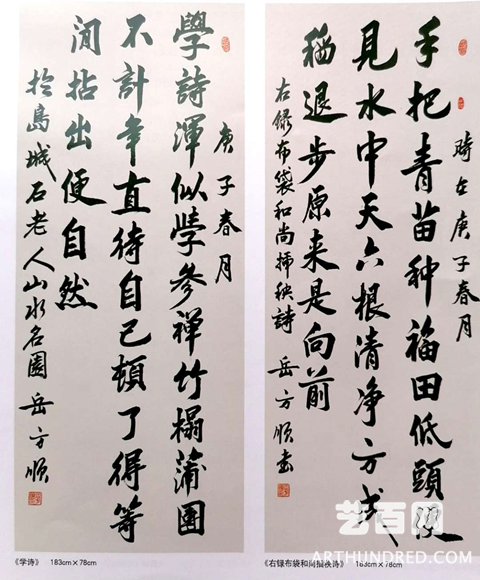 手把青苗种福田低頭便
見水中天六根清净方成
稲退步原来是向前
時在庚子春月
右録布袋和尚插秧詩 岳方順書
學詩渾似學参禅竹榻蒲團
不計年直待自己頓了得等
閒拈出便自然
庚子春月
於島城石老人山水名園 岳方順
《学诗》 183cm×78cm
《右録布袋和尚插秧诗》 183cm×78cm
艺百网
ARTHUNDRED.COM